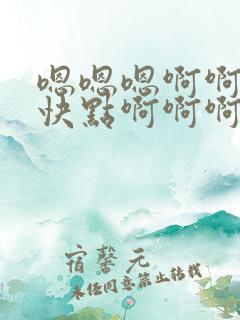 嗯嗯嗯啊啊
快點啊啊啊
宿馨元
未經同意禁止轉載